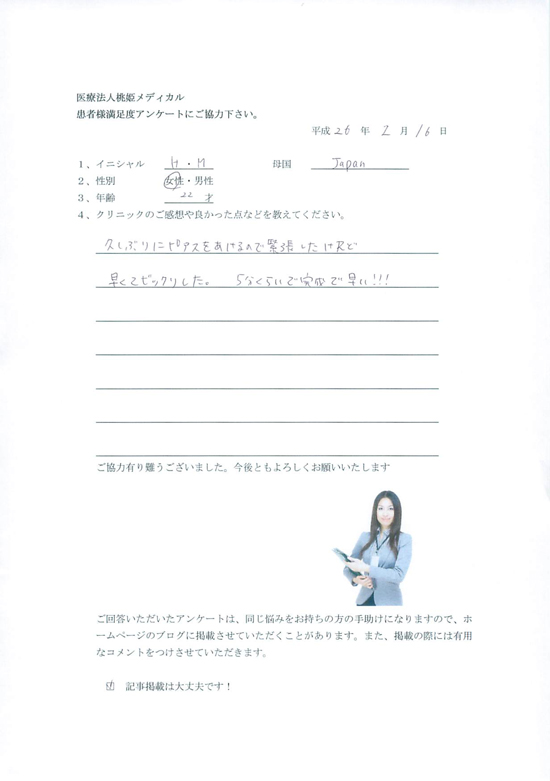 医療法人桃姫メディカル
患者様満足度アンケートにご協力下さい。
平成 26 年 2 月 16 日
1、イニシャル H・M 母国 Japan
2、性別 女性・男性
3、年齢 22 才
4、クリニックのご感想や良かった点などを教えてください。
久しぶりにピアスをあけるので緊張したけれど
早くてビックリした。 5分くらいで完了で早い!!!
ご協力有り難うございました。今後ともよろしくお願いいたします
ご回答いただいたアンケートは、同じ悩みをお持ちの方の手助けになりますので、ホ
ームページのブログに掲載させていただくことがあります。また、掲載の際には有用
なコメントをつけさせていただきます。
記事掲載は大丈夫です!